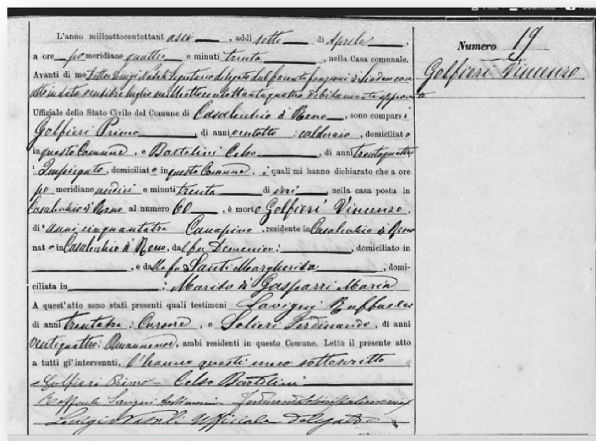 Numero 19
Golfieri Vincenzo
L'anno milleottocentottantasei, addì sette di Aprile,
a ore pomeridiane quattro e minuti trenta, nella Casa comunale.
Avanti di me Luigi Segretario delegato
Uffiziale dello Stato Civile del Comune di Casalecchio di Reno, sono comparsi
Golfieri Primo, di anni ventotto, calderaio, domiciliato
in questo Comune, e Bartolini Celso, di anni trentaquattro
Impiegato, domiciliato in questo Comune, i quali mi hanno dichiarato che a ore
pomeridiane undici e minuti trenta di ieri, nella casa posta in
Casalecchio di Reno al numero 60, è morto Golfieri Vincenzo
di anni cinquantatre Canapino, residente in Casalecchio di Reno
nato in Casalecchio di Reno, dal fu Domenico, domiciliato in
, e dalla fu Santi Margherita, domi-
ciliata in : Marito di Gasparri Maria
A quest'atto sono stati presenti quali testimoni Lavigni Raffaele
di anni trentatre, Cursore, e Solieri Ferdinando, di anni
ventiquattro, ambi residenti in questo Comune. Letto il presente atto
a tutti gl'intervenuti, l'hanno questi meco sottoscritto
Golfieri Primo Celso Bartolini
Raffaele Lavigni testimonio Ferdinando Solieri testimonio
Luigi Uffiziale Delegato